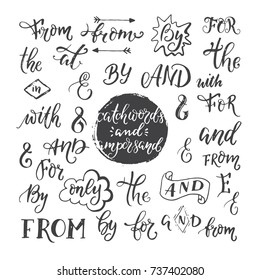 From from By FOR
the at the
in & BY AND with
with & catchwords & and
& and
AND ampersand & FROM
For
By only the AND &
FROM by for a AND from
737402080